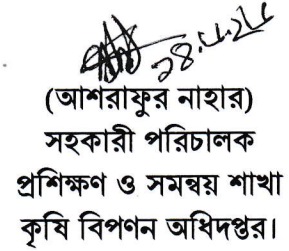 ২৪.৮.২৫
(আশরাফুর নাহার)
সহকারী পরিচালক
প্রশিক্ষণ ও সমন্বয় শাখা
কৃষি বিপণন অধিদপ্তর।